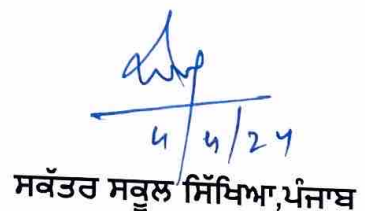 4/4/24
ਸਕੱਤਰ ਸਕੂਲ ਸਿੱਖਿਆ,ਪੰਜਾਬ